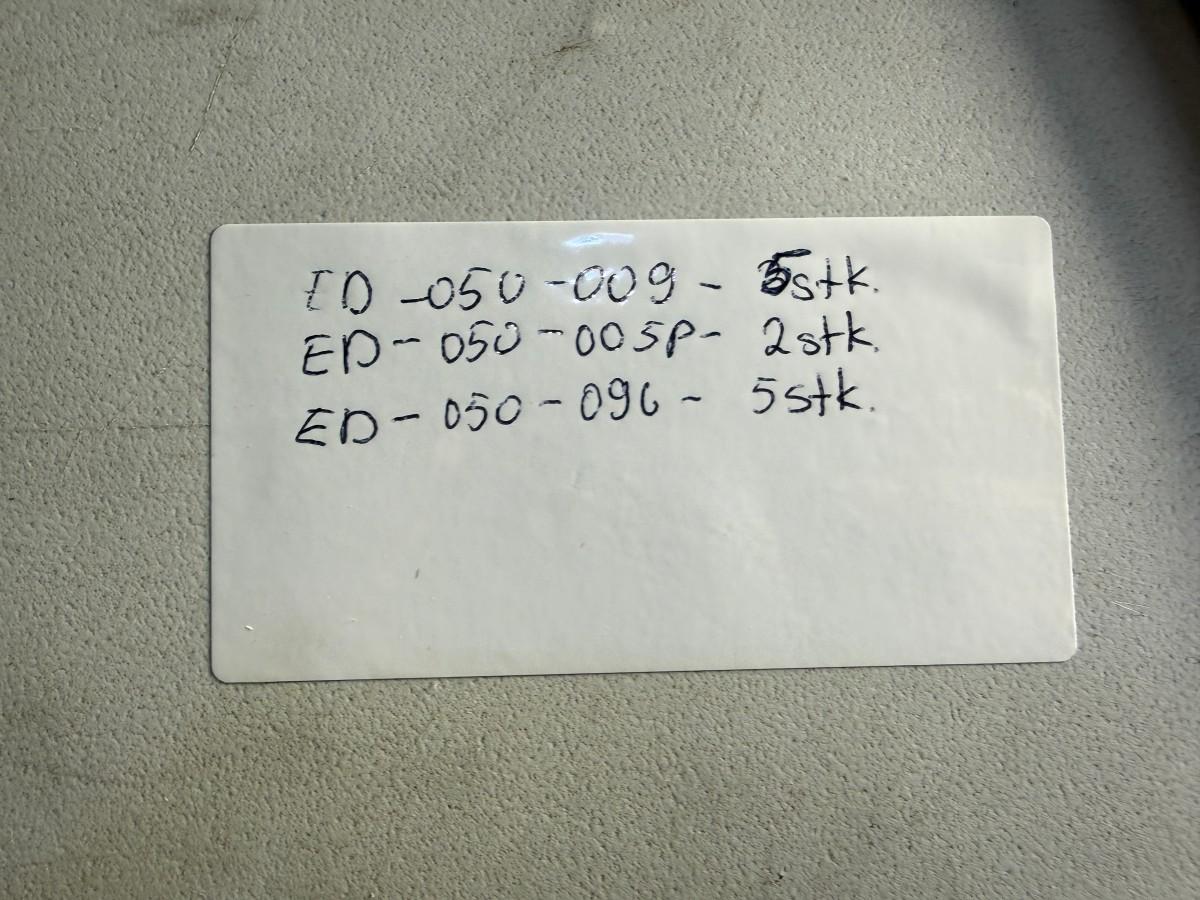 ED -050 -009 - 5stk.
ED - 050 - 005P - 2stk.
ED - 050 - 096 - 5stk.